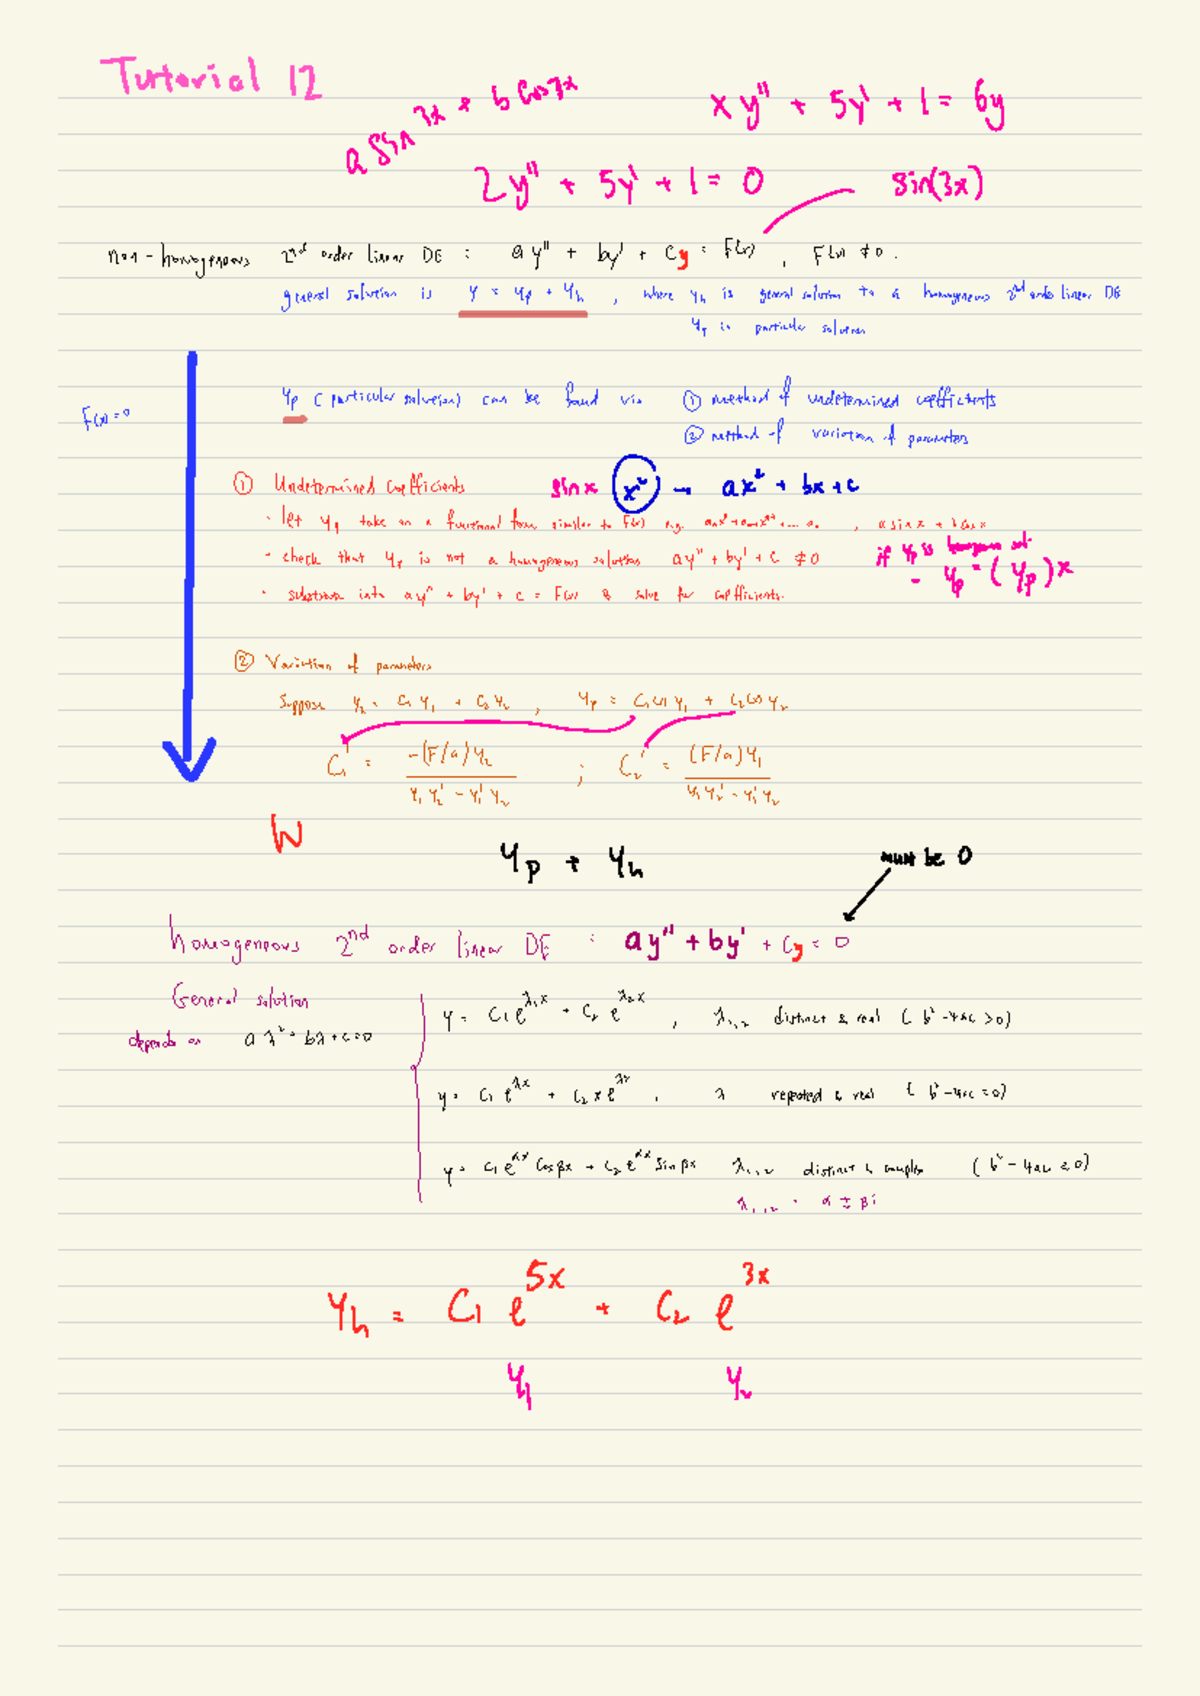 Tutorial 12
a sin 3x + b cos 3x
xy'' + 5y' + 1 = 6y
2y'' + 5y' + 1 = 0
sin(3x)
non-homogeneous 2nd order linear DE : ay'' + by' + cy = F(x) , F(x) ≠ 0.
general solution is y = yp + yh , where yh is general solution to a homogeneous 2nd order linear DE
yp is particular solution
F(x)=0
yp (particular solution) can be found via ① method of undetermined coefficients
② method of variation of parameters
① Undetermined coefficients
sin x x² → ax² + bx + c
· let yp take on a functional form similar to F(x) e.g. , a sin x + b cos x
- check that yp is not a homogeneous solution ay'' + by' + c ≠ 0
if yp is sol.
- yp = (yp)x
· substitute into ay'' + by' + c = F(x) & solve for coefficients.
② Variation of parameters
Suppose = C1 y1 + C2 y2 , yp = C1(x) y1 + C2(x) y2
C1' = -(F/a)y2 / y1 y2' - y1' y2 ; C2' = (F/a)y1 / y1 y2' - y1' y2
W
yp + yh
must be 0
homogeneous 2nd order linear DE : ay'' + by' + cy = 0
General solution
depends on aλ² + bλ + c = 0
y = C1 e^λ1x + C2 e^λ2x , λ1,2 distinct & real ( b² - 4ac > 0)
y = C1 e^λx + C2 x e^λx , λ repeated & real ( b² - 4ac = 0)
y = C1 e^αx cos βx + C2 e^αx sin βx λ1,2 distinct & complex
λ1,2 = α ± βi
yh = C1 e^5x + C2 e^3x
y1 y2